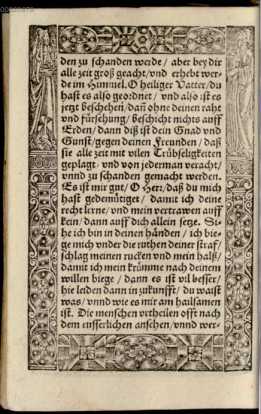 den zu schanden werde / aber bey dir
alle zeit groß geacht / vnd erhebt wer-
de im Himmel. O heiliger Vatter / du
hast es also geordnet / vnd also ist es
jetzt beschehen / dañ ohne deinen raht
vnd fürsehung / beschicht nichts auff
Erden / dann diß ist dein Gnad vnd
Gunst / gegen deinen Freunden / daß
sie alle zeit mit vilen Trübseligkeiten
geplagt vnd von jederman veracht /
vnnd zu schanden gemacht werden.
Es ist mir gut / O Herr / daß du mich
hast gedemütiget / damit ich deine
recht lerne / vnd mein vertrawen auff
kein / dann auff dich allein setze. Si-
he ich bin in deinen händen / ich bie-
ge mich vnder die ruthen deiner straf /
schlag meinen rucken vnd mein halß /
damit ich mein krümme nach deinem
willen biege / dann es ist vil besser /
hie leiden dann in zukunfft / du waist
was / vnnd wie es mir am hailsamen
ist. Die menschen vrtheilen offt nach
dem eusserlichen ansehen / vnnd wer-